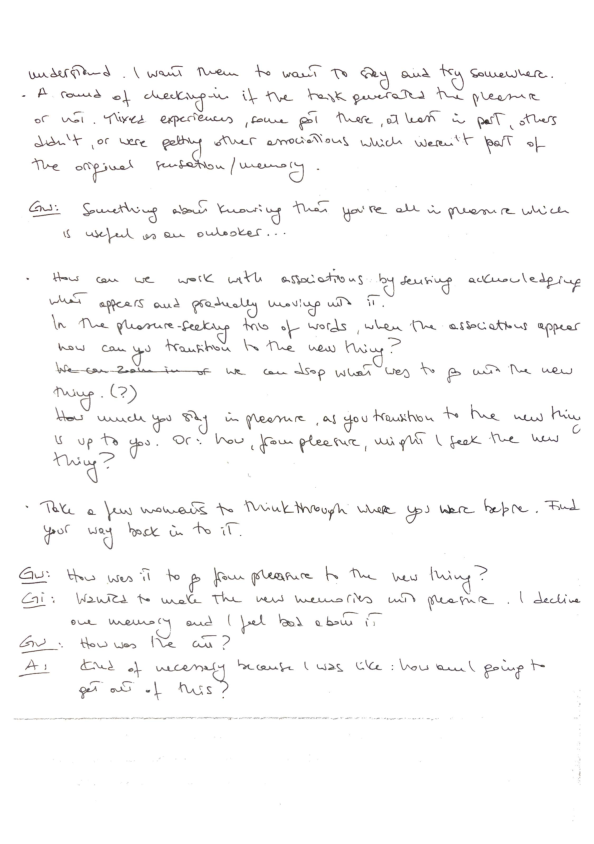 understand. I want them to want to stay and try somewhere.
- A round of checking-in if the task generated the pleasure
or not. Mixed experiences, some got there, at least in part, others
didn't, or were getting other associations which weren't part of
the original sensation/memory.
Gw: Something about knowing that you're all in pleasure which
is useful as an onlooker...
· How can we work with associations by sensing acknowledging
what appears and gradually moving into it.
In the pleasure-seeking trio of words, when the associations appear
how can you transition to the new thing?
We can zoom in or we can drop what was to go into the new
thing. (?)
How much you stay in pleasure, as you transition to the new thing
is up to you. Or: how, from pleasure, might I seek the new
thing?
· Take a few moments to think through where you were before. Find
your way back in to it.
Gw: How was it to go from pleasure to the new thing?
Gi: Wanted to make the new memories into pleasure. I decline
one memory and I feel bad about it
Gw: How was the cut?
A: Kind of necessary because I was like: how am I going to
get out of this?